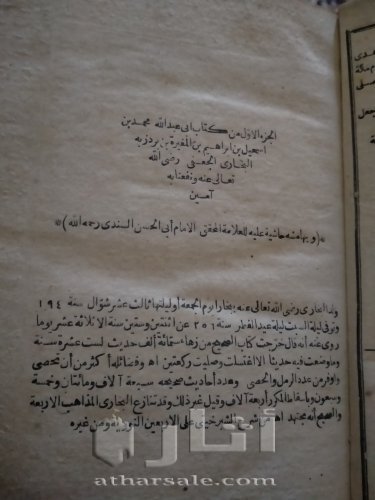 الجزء الاول من كتاب ابى عبدالله محمد بن
اسمعيل بن ابراهيم بن المغيرة بن بردزبه
البخارى الجعفى رضى الله
تعالى عنه ونفعنا به
آمين
(وبهامشه حاشية عليه للعلامة المحقق الامام أبى الحسن السندى رحمه الله)
ولد البخارى رضى الله تعالى عنه ببخارا يوم الجمعة أوليلتها ثالث عشر شوال سنة ١٩٤
وتوفى ليلة السبت ليلة عيد الفطر سنة ٢٥٦ عن اثنتين وستين سنة الا ثلاثة عشر يوما
روى عنه أنه قال خرجت كتاب الصحيح من زهاء ستمائة ألف حديث لست عشرة سنة
وما وضعت فيه حديثا الا اغتسلت وصليت ركعتين اه وفضائله أكثر من أن تحصى
وأوفر من عدد الرمل والحصى وعدد أحاديث صحيحه سبعة آلاف ومائتان وخمسة
وسبعون وباسقاط المكرر أربعة آلاف وقيل غير ذلك وقد تنازع البخارى المذاهب الاربعة
والصحيح أنه مجتهد اه من شرح الشبرخيتى على الاربعين النووية ومن غيره
آثار
atharsale.com